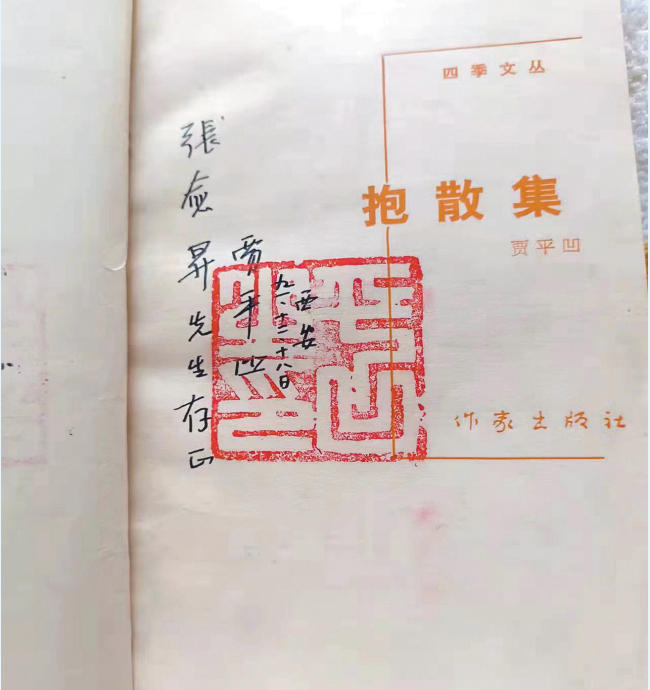 四季文丛
抱散集
贾平凹
作家出版社
張
昇先生存正
賈平凹
九一.十二.十八日
西安
平凹之印